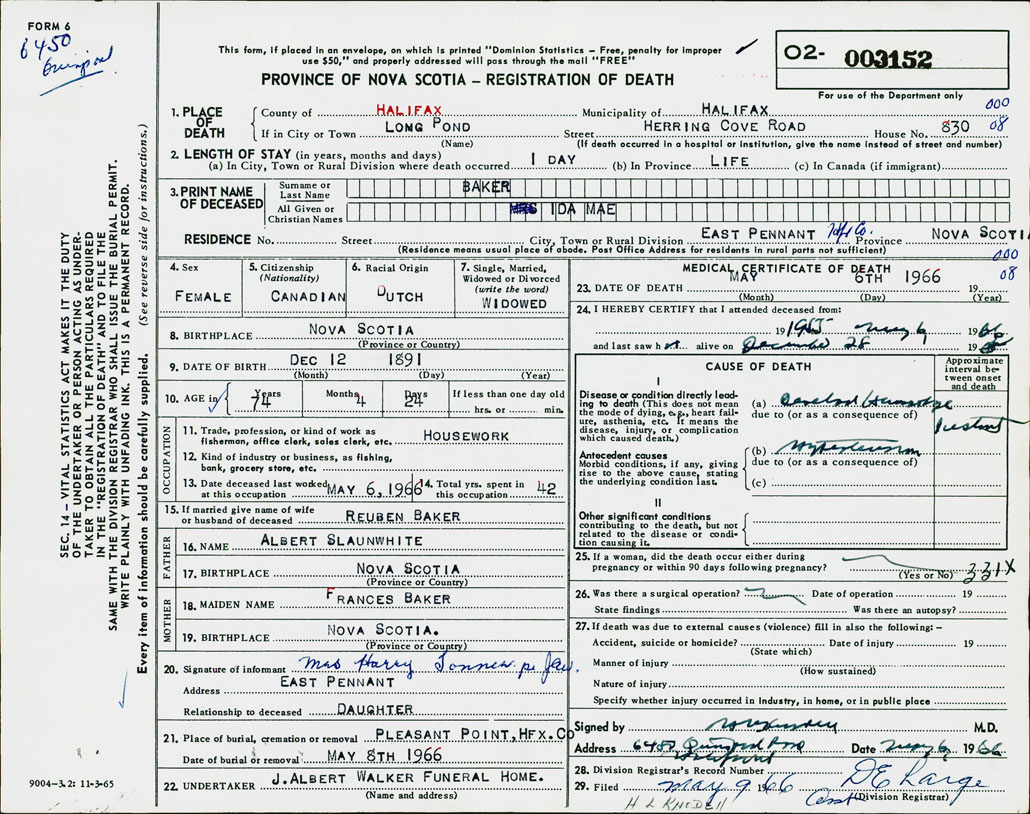 FORM 6
6450
This form, if placed in an envelope, on which is printed "Dominion Statistics – Free, penalty for improper
use $50," and properly addressed will pass through the mail "FREE"
PROVINCE OF NOVA SCOTIA – REGISTRATION OF DEATH
02- 003152
For use of the Department only
000
1. PLACE OF DEATH County of HALIFAX Municipality of HALIFAX
If in City or Town LONG POND Street HERRING COVE ROAD House No. 830 08
(Name) (If death occurred in a hospital or institution, give the name instead of street and number)
2. LENGTH OF STAY (in years, months and days)
(a) In City, Town or Rural Division where death occurred 1 DAY (b) In Province LIFE (c) In Canada (if immigrant)
3. PRINT NAME OF DECEASED
Surname or Last Name BAKER
All Given or Christian Names MRS IDA MAE
RESIDENCE No. Street City, Town or Rural Division EAST PENNANT Hfx Co. Province NOVA SCOTIA
(Residence means usual place of abode. Post Office Address for residents in rural parts not sufficient)
000
08
4. Sex FEMALE
5. Citizenship (Nationality) CANADIAN
6. Racial Origin DUTCH
7. Single, Married, Widowed or Divorced (write the word) WIDOWED
8. BIRTHPLACE NOVA SCOTIA
(Province or Country)
9. DATE OF BIRTH DEC 12 1891
(Month) (Day) (Year)
10. AGE in Years 74 Months 4 Days 24 If less than one day old hrs. or min.
OCCUPATION
11. Trade, profession, or kind of work as fisherman, office clerk, sales clerk, etc. HOUSEWORK
12. Kind of industry or business, as fishing, bank, grocery store, etc.
13. Date deceased last worked at this occupation MAY 6, 1966
14. Total yrs. spent in this occupation 42
15. If married give name of wife or husband of deceased REUBEN BAKER
FATHER
16. NAME ALBERT SLAUNWHITE
17. BIRTHPLACE NOVA SCOTIA
(Province or Country)
MOTHER
18. MAIDEN NAME FRANCES BAKER
19. BIRTHPLACE NOVA SCOTIA.
(Province or Country)
20. Signature of informant Mrs Harry
Address EAST PENNANT
Relationship to deceased DAUGHTER
21. Place of burial, cremation or removal PLEASANT POINT, HFX. CO
Date of burial or removal MAY 8TH 1966
22. UNDERTAKER J. ALBERT WALKER FUNERAL HOME.
(Name and address)
MEDICAL CERTIFICATE OF DEATH
23. DATE OF DEATH MAY 6TH 1966 19
(Month) (Day) (Year)
24. I HEREBY CERTIFY that I attended deceased from:
19 1955 May 6 1966
and last saw her alive on December 28 19
CAUSE OF DEATH
Approximate interval between onset and death
I
Disease or condition directly leading to death (This does not mean the mode of dying, e.g., heart failure, asthenia, etc. It means the disease, injury, or complication which caused death.)
(a) Cerebral Hemorrhage
due to (or as a consequence of) Instant
Antecedent causes
Morbid conditions, if any, giving rise to the above cause, stating the underlying condition last.
(b) Hypertension
due to (or as a consequence of)
(c)
II
Other significant conditions contributing to the death, but not related to the disease or condition causing it.
25. If a woman, did the death occur either during pregnancy or within 90 days following pregnancy?
(Yes or No) 331X
26. Was there a surgical operation? Date of operation 19
State findings Was there an autopsy?
27. If death was due to external causes (violence) fill in also the following: –
Accident, suicide or homicide? Date of injury 19
(State which)
Manner of injury
(How sustained)
Nature of injury
Specify whether injury occurred in industry, in home, or in public place
Signed by M.D.
Address Date May 6 1966
28. Division Registrar's Record Number
29. Filed May 9 1966 D E Large
(Division Registrar)
H L KNODELL
SEC. 14 – VITAL STATISTICS ACT MAKES IT THE DUTY
OF THE UNDERTAKER OR PERSON ACTING AS UNDER-
TAKER TO OBTAIN ALL THE PARTICULARS REQUIRED
IN THE "REGISTRATION OF DEATH" AND TO FILE THE
SAME WITH THE DIVISION REGISTRAR WHO SHALL ISSUE THE BURIAL PERMIT.
WRITE PLAINLY WITH UNFADING INK. THIS IS A PERMANENT RECORD.
Every item of information should be carefully supplied. (See reverse side for instructions.)
9004-3.2: 11-3-65